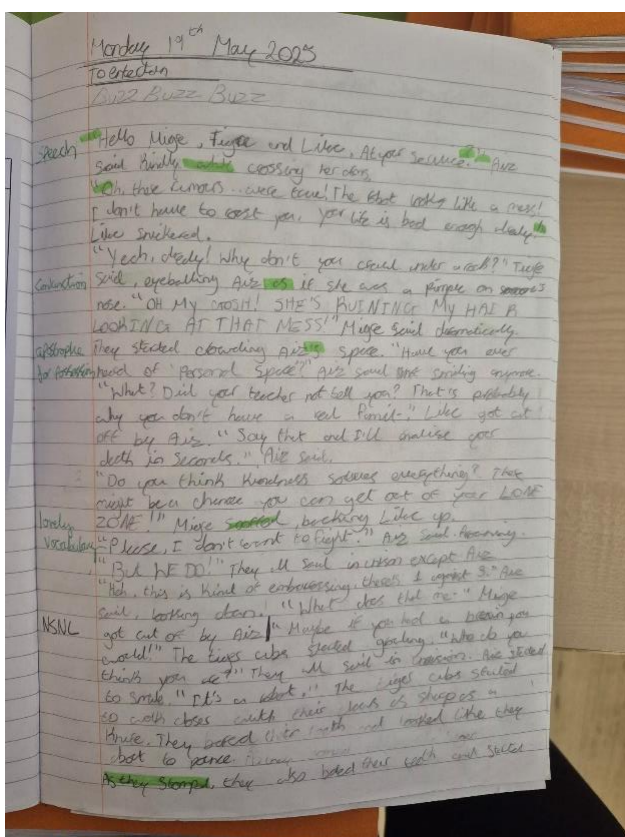 Monday 19th May 2025
To entertain
Buzz Buzz Buzz
speech "Hello Migre, and Like, At your service." Aiz
said kindly while crossing her arms.
"Oh, those rumours.. were true! The robot looks like a mess!
I don't have to roast you, your life is bad enough already."
Like snickered.
"Yeah, deady! Why don't you crawl under a rock?"
Conjunction said, eyeballing Aiz as if she was a pimple on someone's
nose. "OH MY GOSH! SHE'S RUINING MY HAIR
LOOKING AT THAT MESS!" Migre said dramatically.
apostrophe They started crowding Aiz's space. "Have you ever
for possession heard of 'Personal Space'?" Aiz said smiling anymore.
"What? Did your teacher not tell you? That is probably
why you don't have a real Famil-" Like got cut
off by Aiz. "Say that and I'll your
deth in seconds." Aiz said.
"Do you think Kindness everything? There
might be a chance you can get out of your LONE
lovely ZONE!" Migre backing Like up.
vocabulary "Please, I don't want to fight." Aiz said.
"But WE DO!" They all said in unison except Aiz
"Hah, this is kind of embarassing, theres 1 against 3." Aiz
said, looking down. "What does that me-" Migre
NSNL got cut of by Aiz "Maybe if you had a you
would!" The cubs started "Who do you
think you are?" They all said in Aiz started
to smile. "It's a robot." The cubs started
to closes with their as a
Knife. They bared their teeth and looked like they
abot to
As they stomped, they also bared their teeth and started